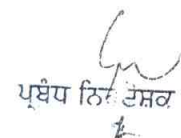 ਪ੍ਰਬੰਧ ਨਿਰਦੇਸ਼ਕ